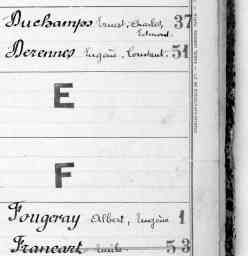 Duchamps Ernest, Charles, 37
Edmond.
Dezennes Eugène, Constant. 51
E
F
Fougeray Albert, Eugène 1
Francart Emile 53